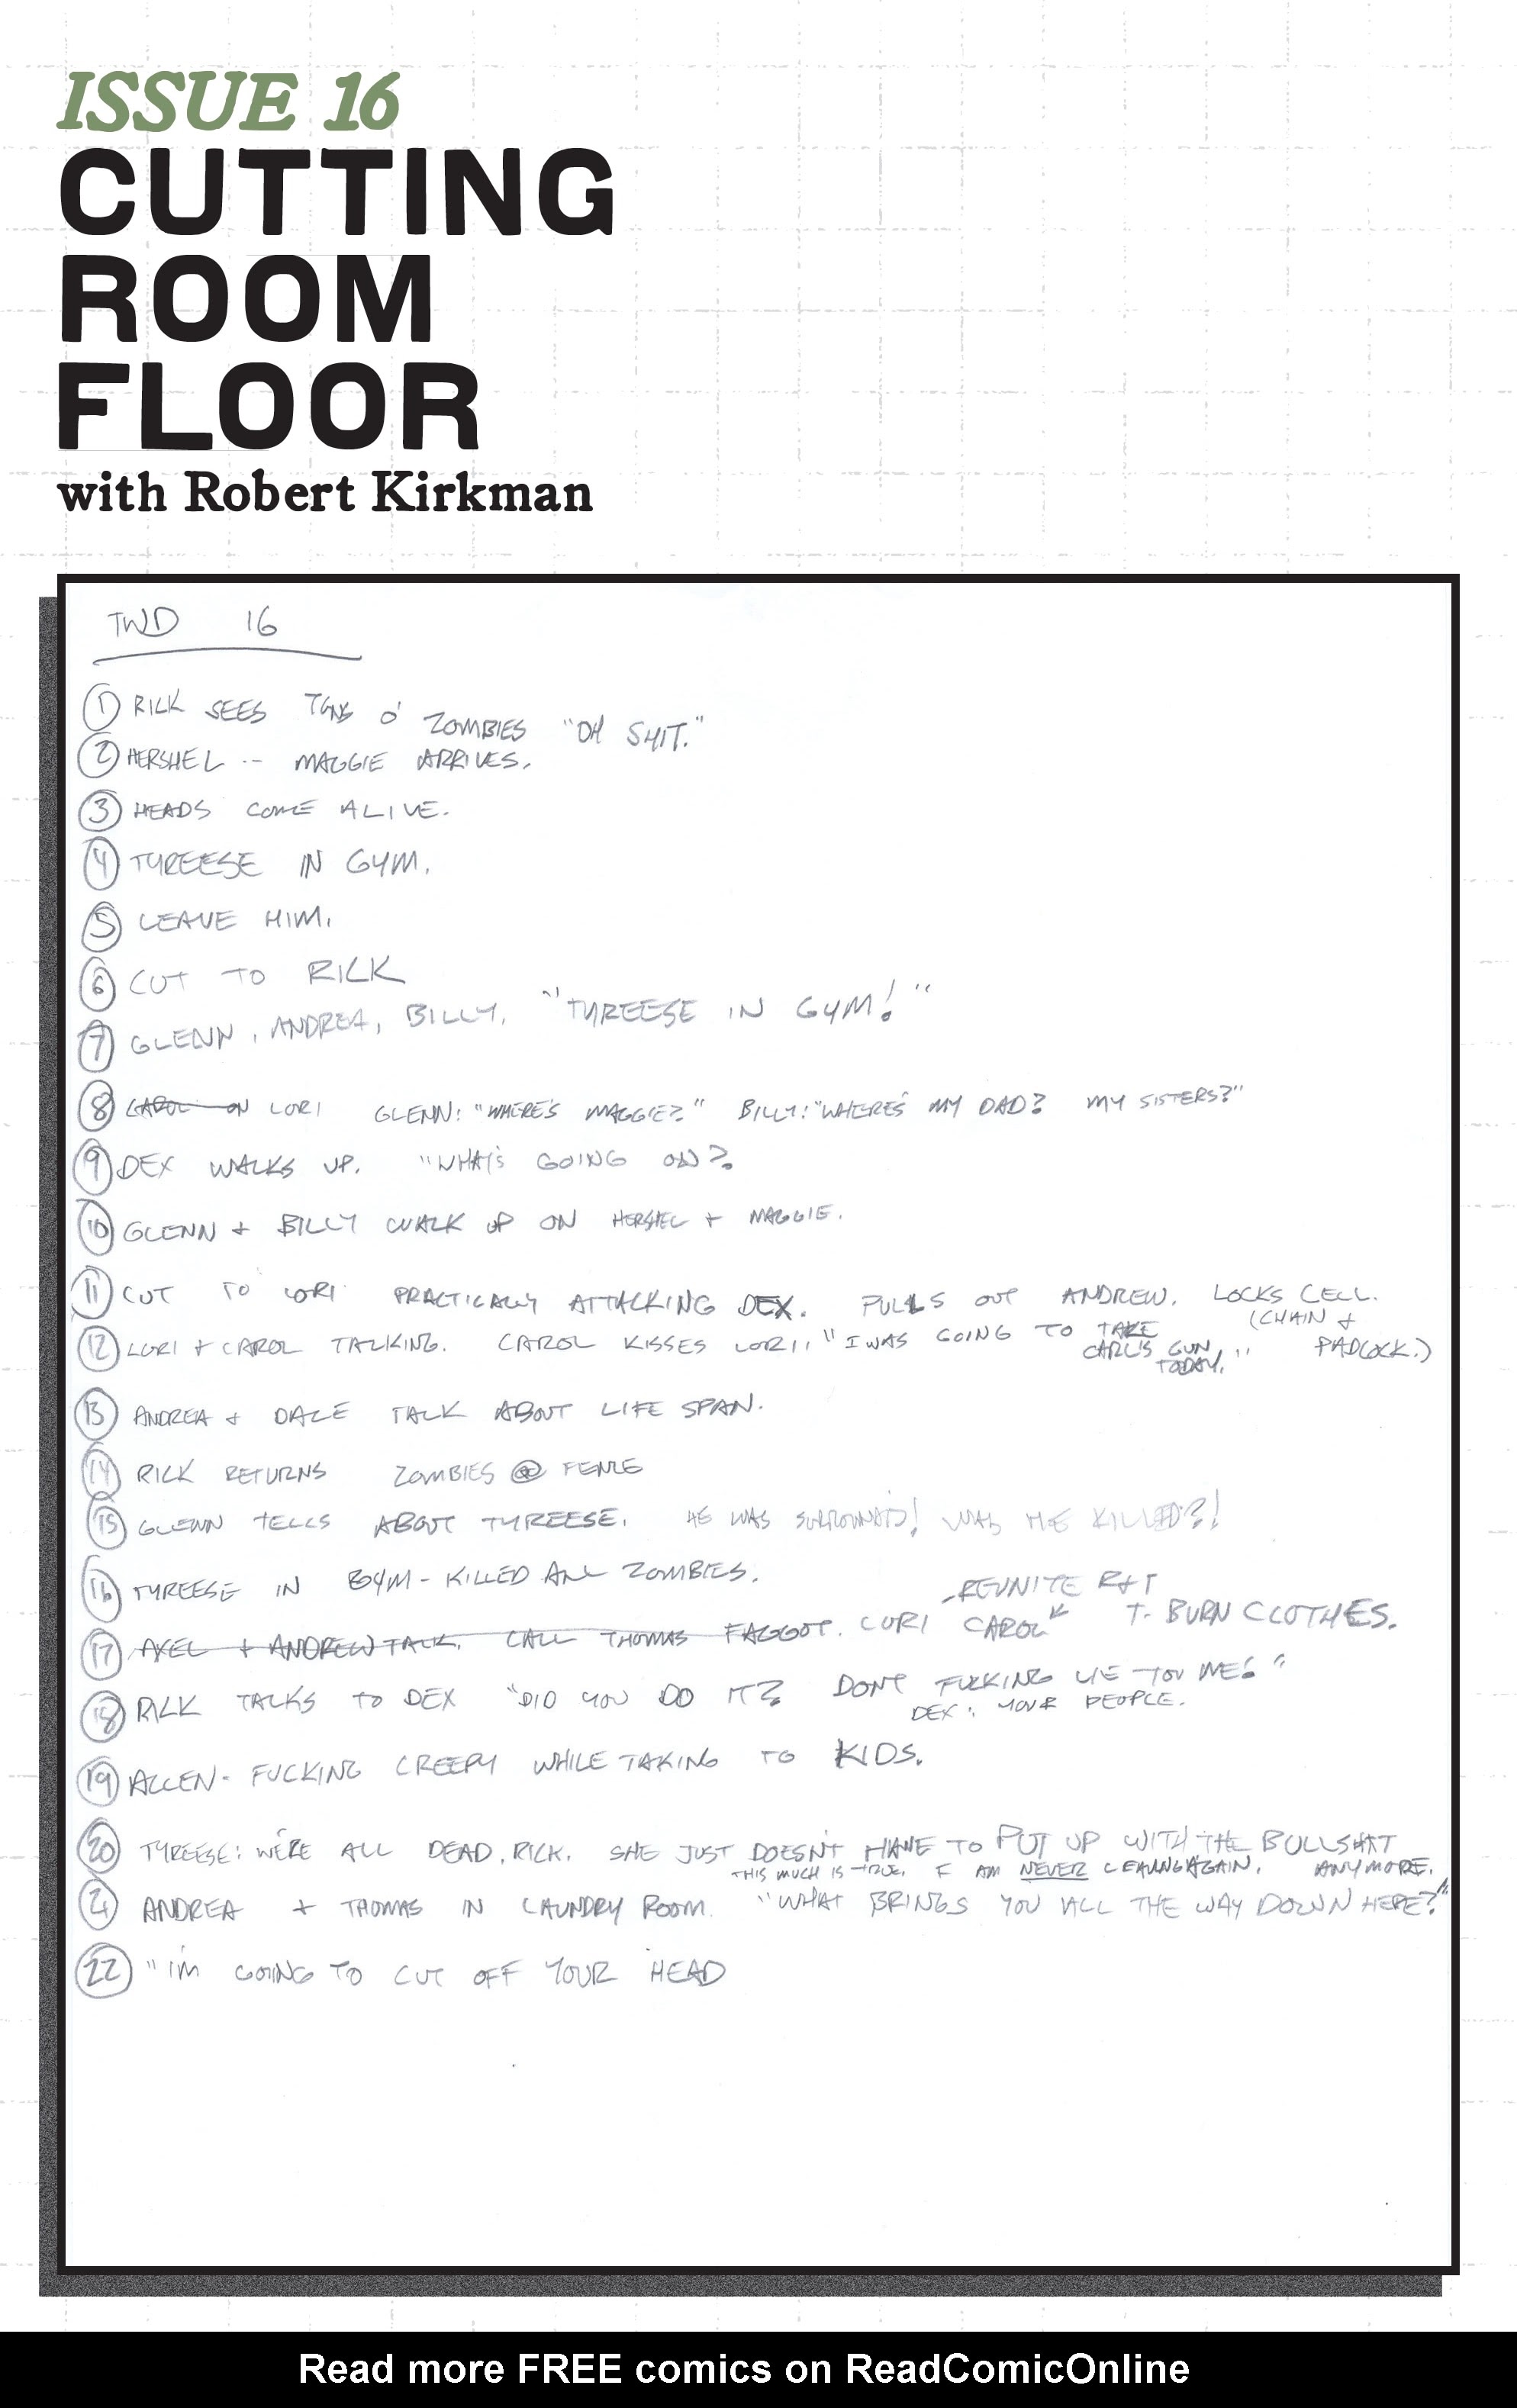 ISSUE 16
CUTTING
ROOM
FLOOR
with Robert Kirkman
TWD 16
1 RICK SEES TONS O' ZOMBIES "OH SHIT."
2 HERSHEL -- MAGGIE ARRIVES.
3 HEADS COME ALIVE.
4 TYREESE IN GYM.
5 LEAVE HIM.
6 CUT TO RICK
7 GLENN, ANDREA, BILLY. "TYREESE IN GYM!"
8 CAROL ON LORI GLENN: "WHERE'S MAGGIE?" BILLY: "WHERE'S MY DAD? MY SISTERS?"
9 DEX WALKS UP. "WHAT'S GOING ON?
10 GLENN + BILLY WALK UP ON HERSHEL + MAGGIE.
11 CUT TO LORI PRACTICALLY ATTACKING DEX. PULLS OUT ANDREW. LOCKS CELL.
(CHAIN + PADLOCK.)
12 LORI + CAROL TALKING. CAROL KISSES LORI. "I WAS GOING TO TAKE
CARL'S GUN
TODAY."
13 ANDREA + DALE TALK ABOUT LIFE SPAN.
14 RICK RETURNS ZOMBIES @ FENCE
15 GLENN TELLS ABOUT TYREESE. HE WAS SURROUNDED! WAS HE KILLED?!
16 TYREESE IN GYM - KILLED ALL ZOMBIES.
REUNITE R+T
17 AXEL + ANDREW TALK. CALL THOMAS FAGGOT. LORI CAROL T- BURN CLOTHES.
18 RICK TALKS TO DEX "DID YOU DO IT? DON'T FUCKING LIE TOU ME!"
DEX: YOUR PEOPLE.
19 ALLEN - FUCKING CREEPY WHILE TAKING TO KIDS.
20 TYREESE: WE'RE ALL DEAD, RICK. SHE JUST DOESN'T HAVE TO PUT UP WITH THE BULLSHIT
ANYMORE.
THIS MUCH IS TRUE. I AM NEVER LEAVING AGAIN.
21 ANDREA + THOMAS IN LAUNDRY ROOM. "WHAT BRINGS YOU ALL THE WAY DOWN HERE?"
22 "I'M GOING TO CUT OFF YOUR HEAD
Read more FREE comics on ReadComicOnline